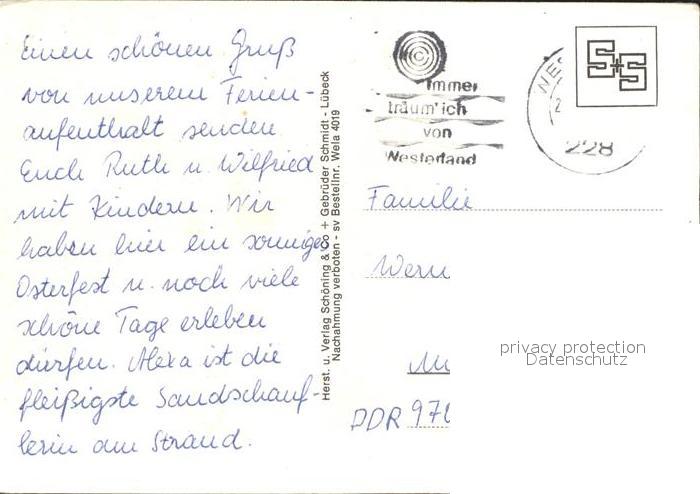 Einen schönen Gruß
von unserem Ferien-
aufenthalt senden
Euch Ruth u. Wilfried
mit Kindern. Wir
haben hier ein sonniges
Osterfest u. noch viele
schöne Tage erleben
dürfen. Alexa ist die
fleißigste Sandschauf-
lerin am Strand.
Herst. u. Verlag Schöning & Co + Gebrüder Schmidt - Lübeck
Nachahmung verboten - sv Bestellnr. Wela 4019
immer
träum' ich
von
Westerland
WES
228
S+S
Familie
Wern
DDR 978
privacy protection
Datenschutz